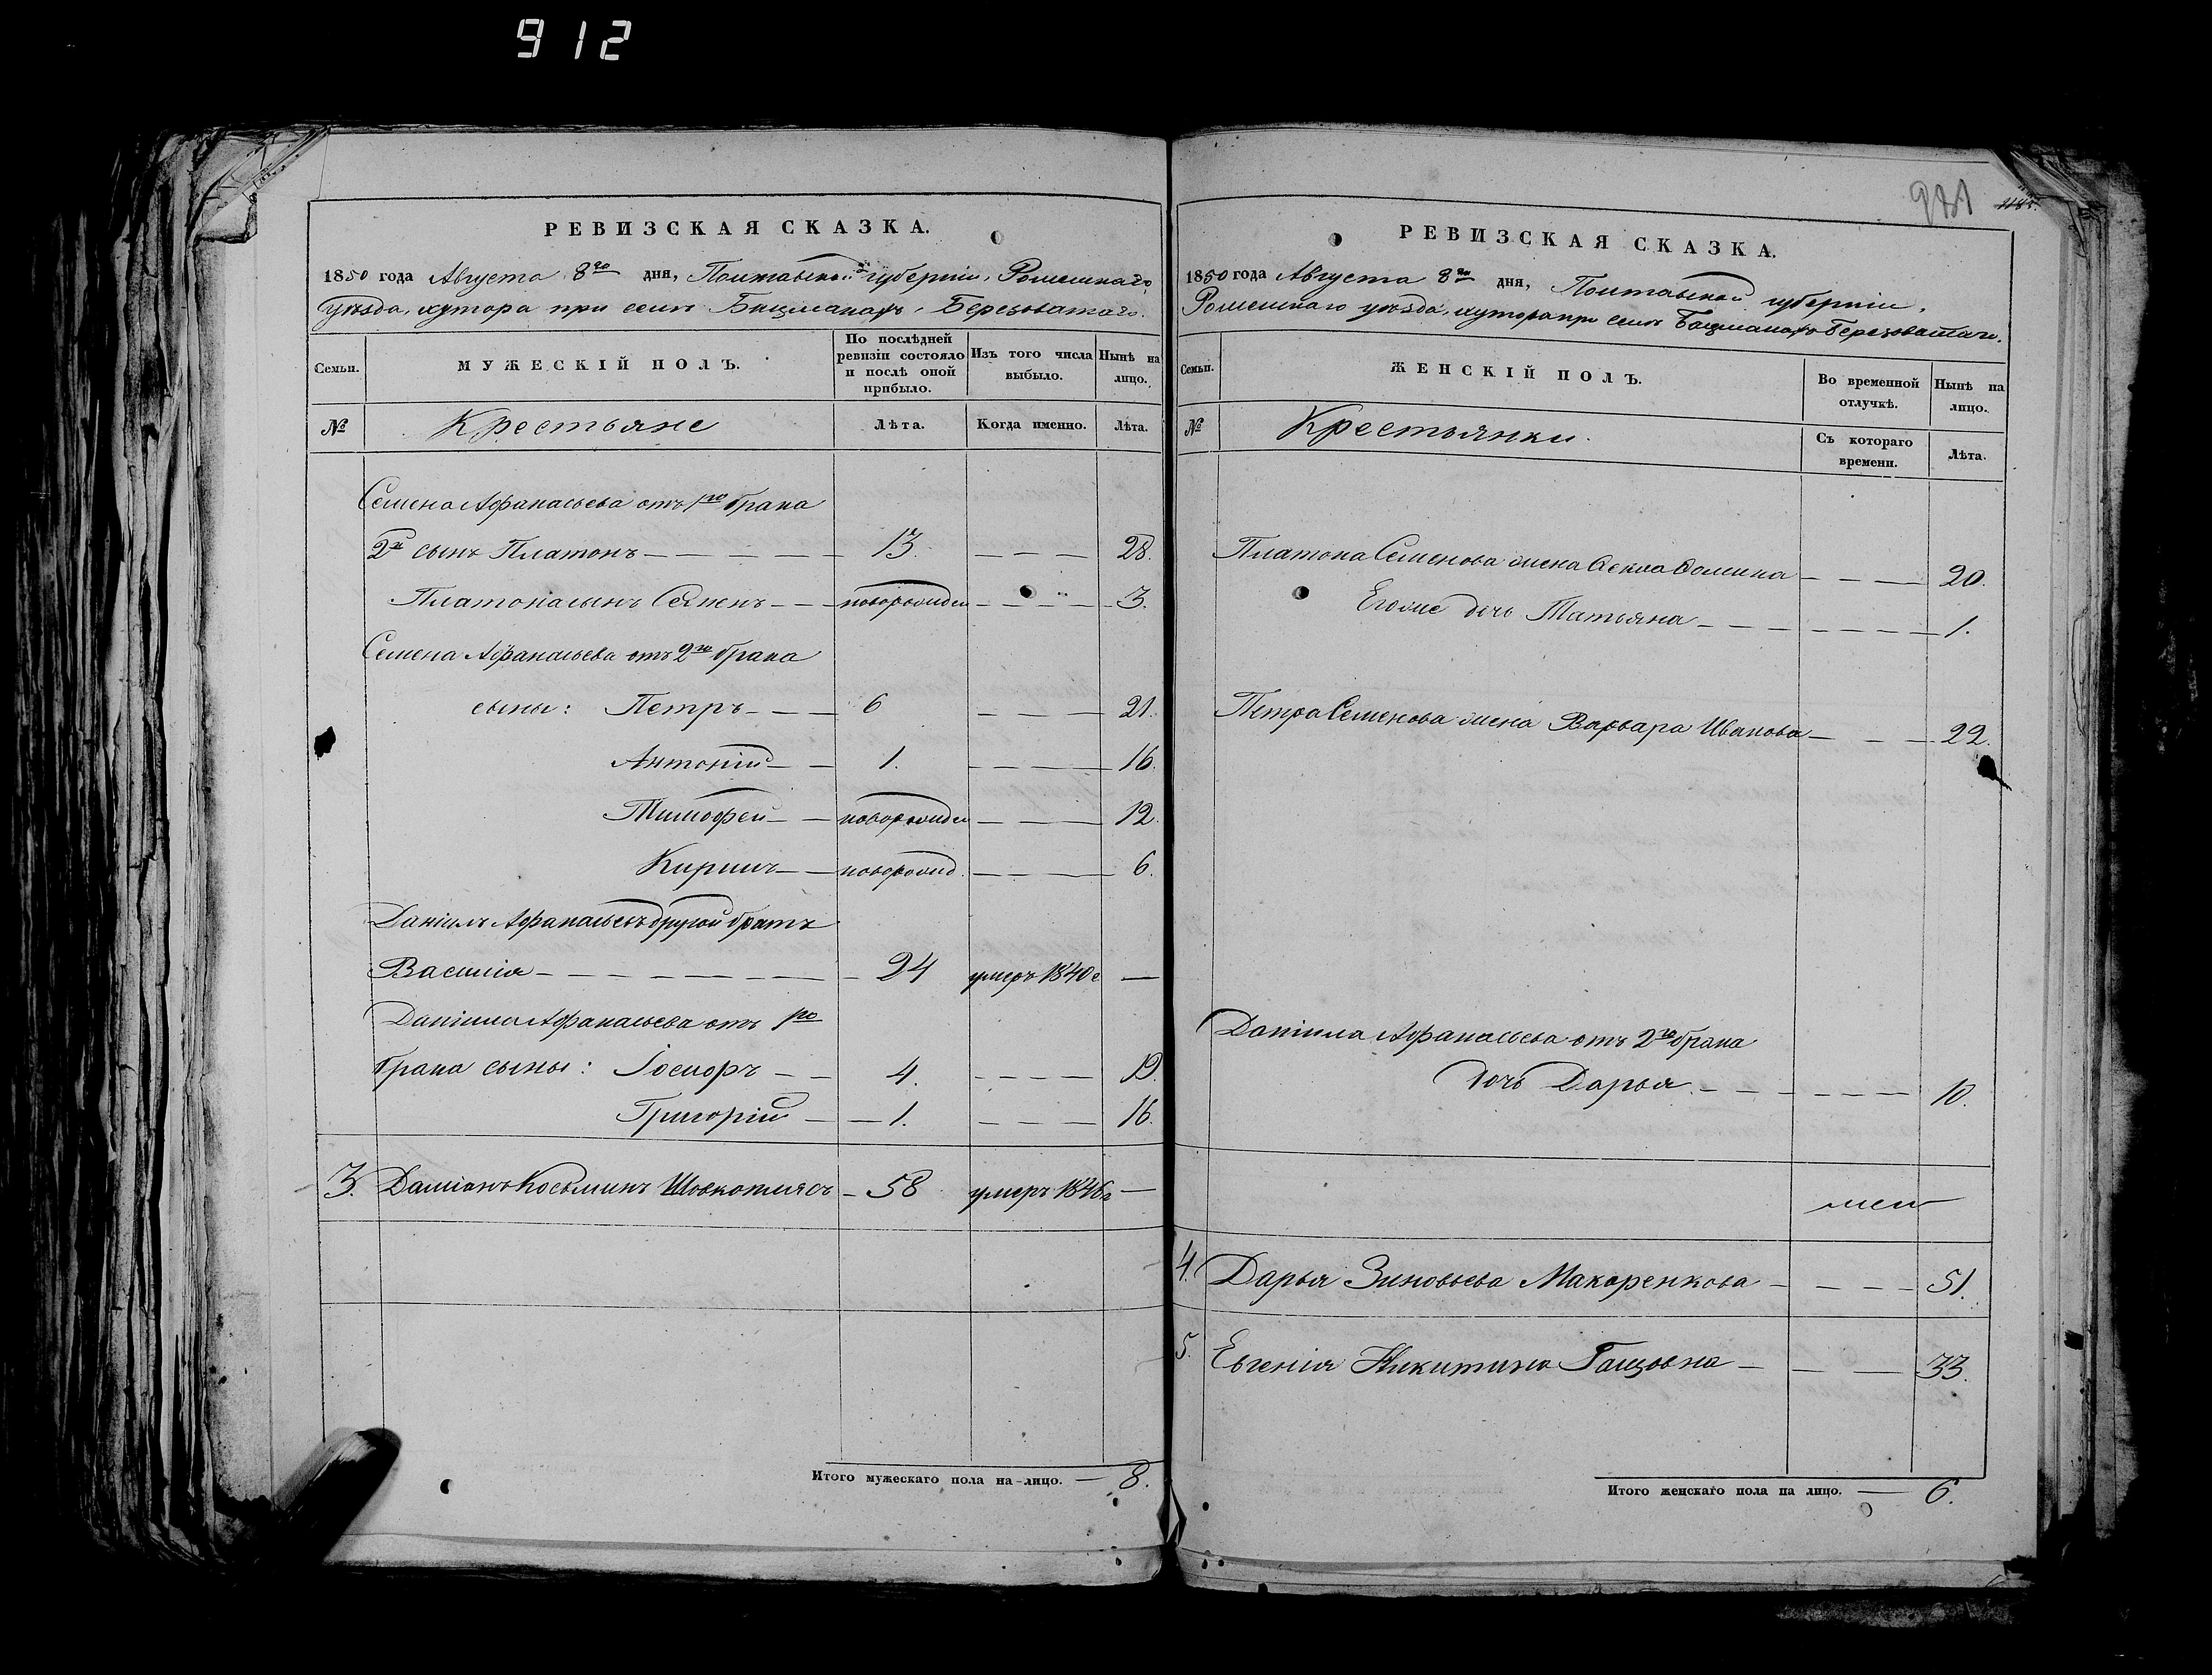 912
981
РЕВИЗСКАЯ СКАЗКА.
1850 года Августа 8го дня, Полтавской губерніи, Роменскаго
уѣзда, хутора при селѣ Бацманахъ, Березоватаго.
Семьи.
МУЖЕСКІЙ ПОЛЪ.
По послѣдней ревизіи состояло и послѣ оной прибыло.
Изъ того числа выбыло.
Нынѣ на лицо.
№
Крестьяне
Лѣта.
Когда именно.
Лѣта.
Семена Афанасьева отъ 1го брака
2й сынъ Платонъ — 13. — 28.
Платона сынъ Семенъ — новорожден — 3.
Семена Афанасьева отъ 2го брака
сыны: Петръ — 6 — 21.
Антоній — 1. — 16.
Тимофей — новорожден — 12.
Кирилъ — новорожд. — 6.
Даніилъ Афанасьевъ другой братъ
Василія — 24 умеръ 1840 г —
Даніила Афанасьева отъ 1го
брака сыны: Іосифъ — 4. — 19.
Григорій — 1. — 16.
3. Даміанъ Косьминъ Шовкоплясъ — 58 умеръ 1846 г —
Итого мужескаго пола на-лицо. — 8.
РЕВИЗСКАЯ СКАЗКА.
1850 года Августа 8го дня, Полтавской губерніи,
Роменскаго уѣзда, хутора при селѣ Бацманахъ Березоватаго.
Семьи.
ЖЕНСКІЙ ПОЛЪ.
Во временной отлучкѣ.
Нынѣ на лицо.
№
Крестьянки.
Съ котораго времени.
Лѣта.
Платона Семенова жена Ѳекла Ѳомина — 20.
Его же дочь Татьяна — 1.
Петра Семенова жена Варвара Иванова — 22.
Даніила Афанасьева отъ 2го брака
дочь Дарья. — 10.
4. Дарья Зиновьева Макаренкова — 51.
5. Евгенія Никитина — 33.
Итого женскаго пола на лицо. — 6.